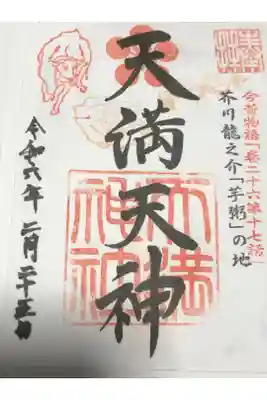 今昔物語「巻二十六第十七話」
芥川龍之介「芋粥」の地
天満天神
天満
神社
令和六年二月二十五日